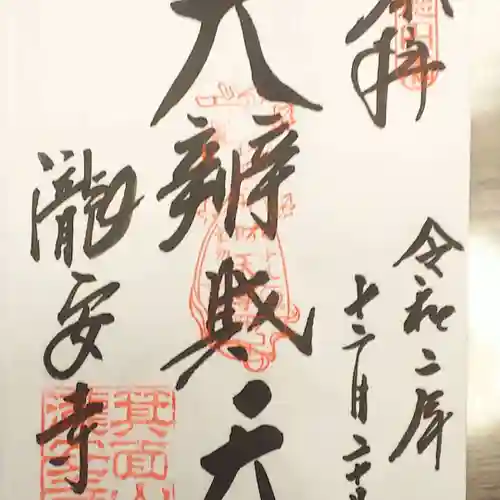 奉拝
令和二年
十二月二十
大辨財天
瀧安寺
箕面山